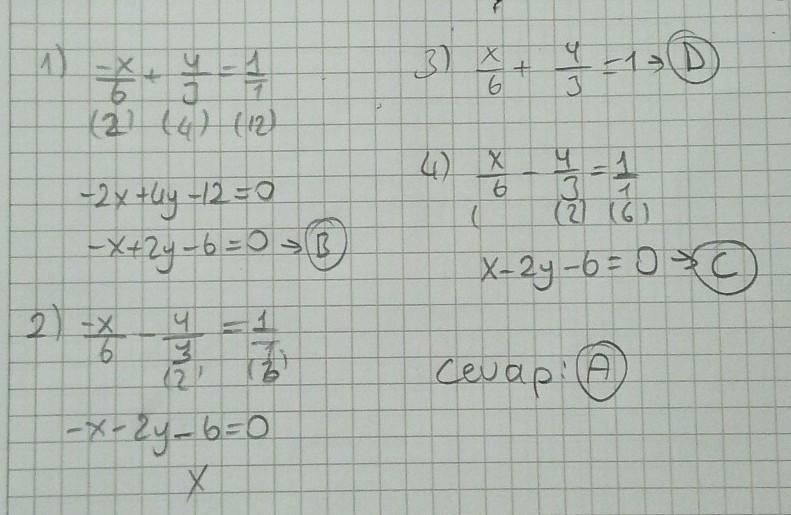 1) -x/6 + y/3 = 1/1
(2) (4) (12)
-2x+4y-12=0
-x+2y-6=0 → B
2) -x/6 - y/3 = 1/1
(2) (6)
-x-2y-6=0
X
3) x/6 + y/3 = 1 → D
4) x/6 - y/3 = 1/1
( (2) (6)
x-2y-6=0 → C
Cevap: A